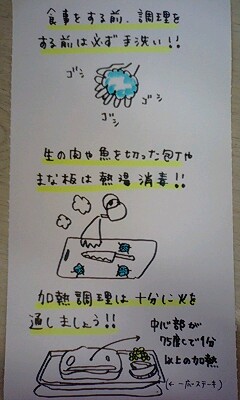 食事をする前、調理を
する前は必ず手洗い!!
ゴシ
ゴシ
ゴシ
生の肉や魚を切った包丁や
まな板は熱湯消毒!!
加熱調理は十分に火を
通しましょう!!
中心部が
75度して1分
以上の加熱
(←一応・ステーキ)